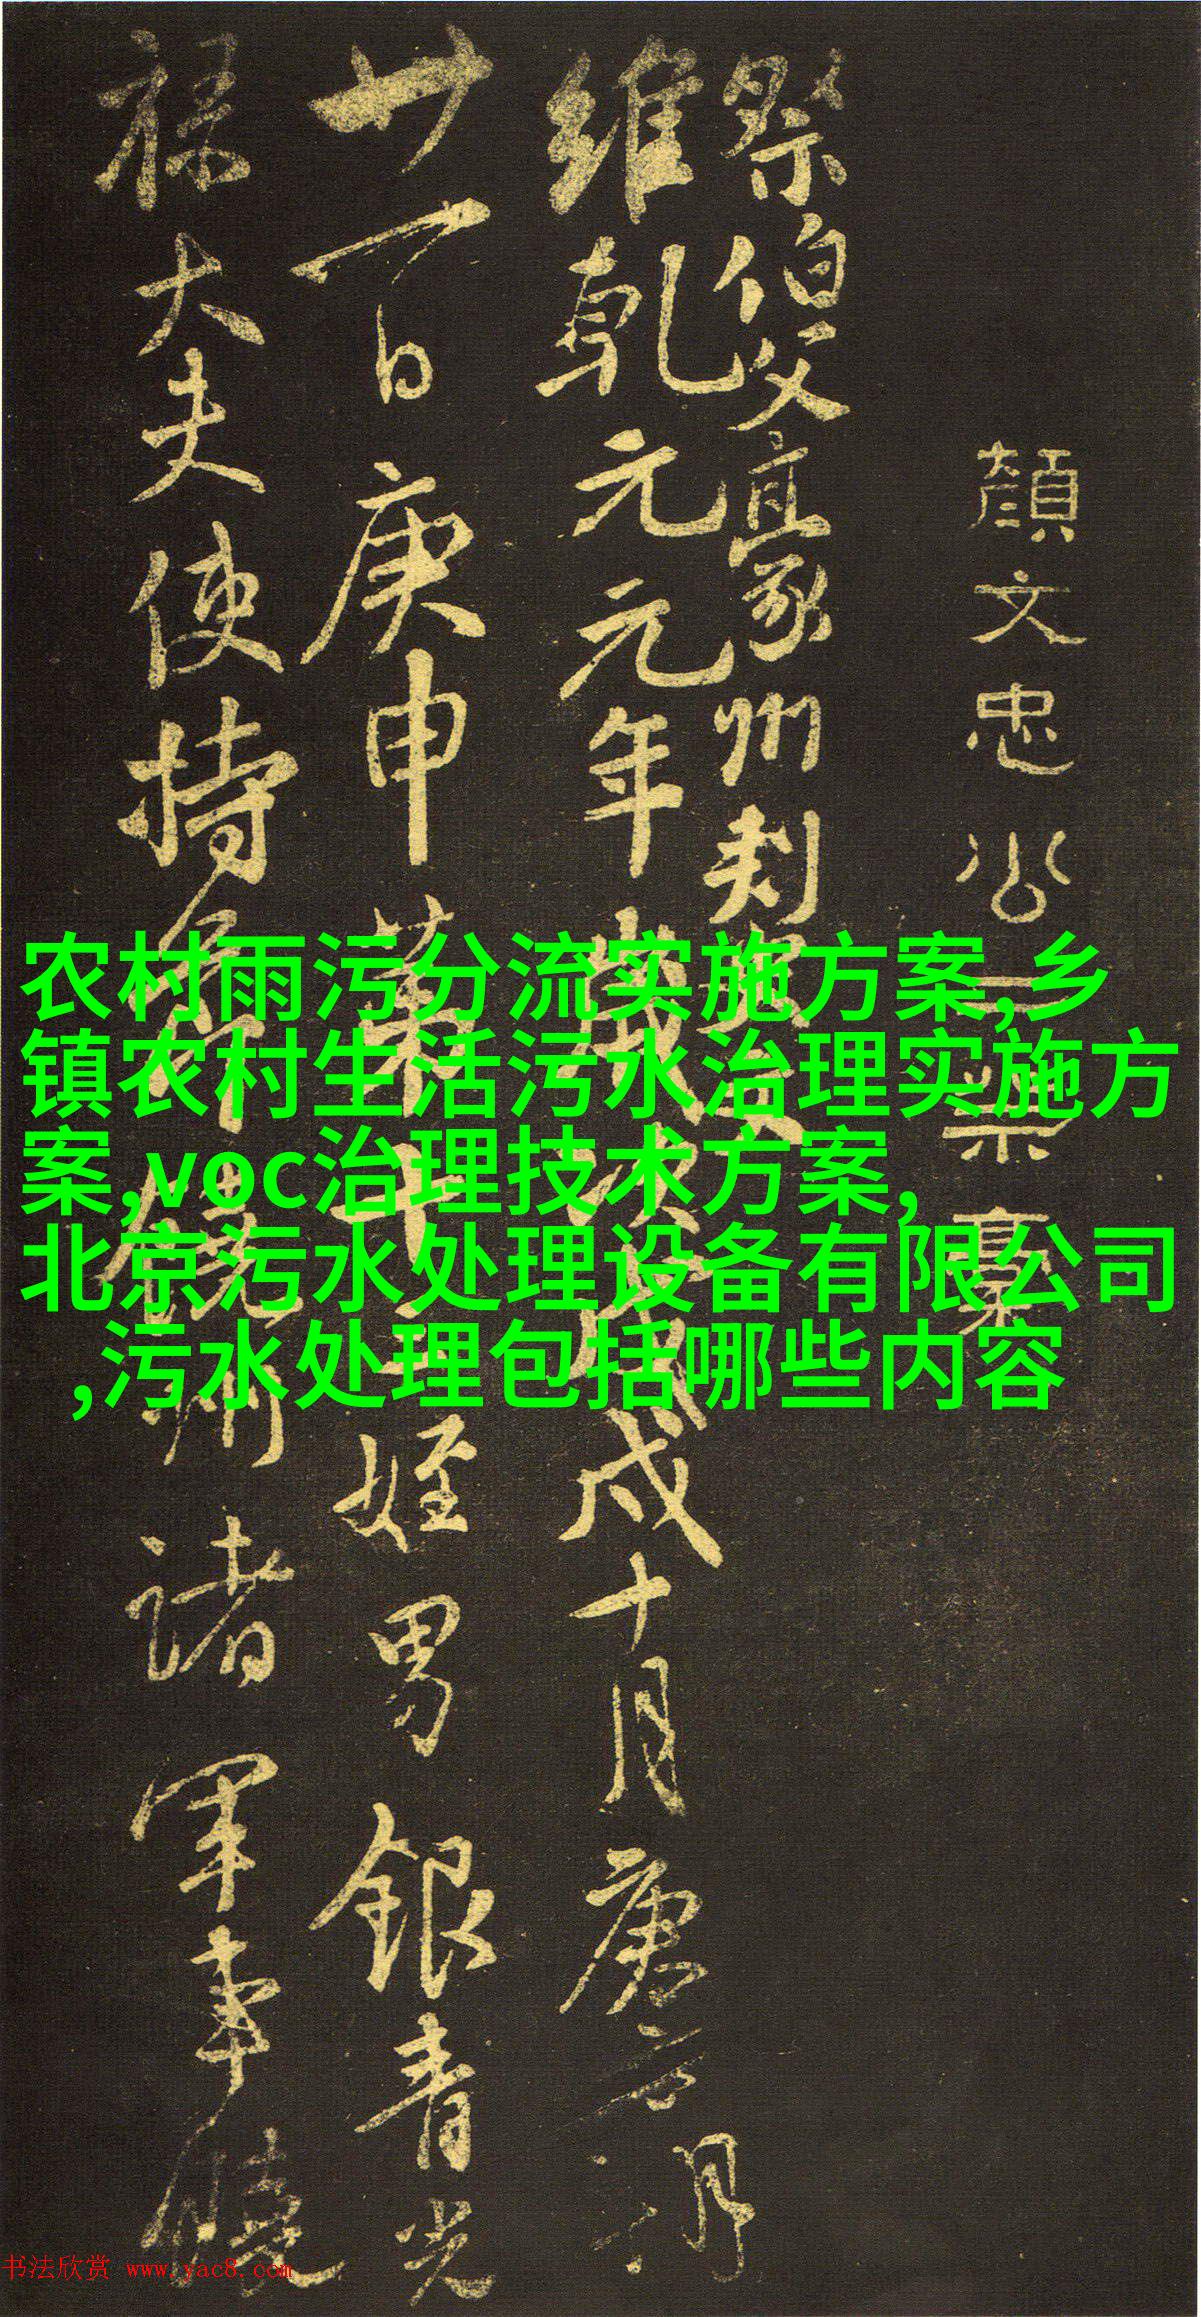 顏文忠公三祭稾
祭伯父豪州刺史文
維乾元元年歲次戊戌十月庚 朔
廿一日庚申第十三姪男銀青光
祿大夫使持節饒州諸軍事饒
农村雨污分流实施方案,乡
镇农村生活污水治理实施方
案,voc治理技术方案,
北京污水处理设备有限公司
,污水处理包括哪些内容
书法欣赏 www.yac8.com